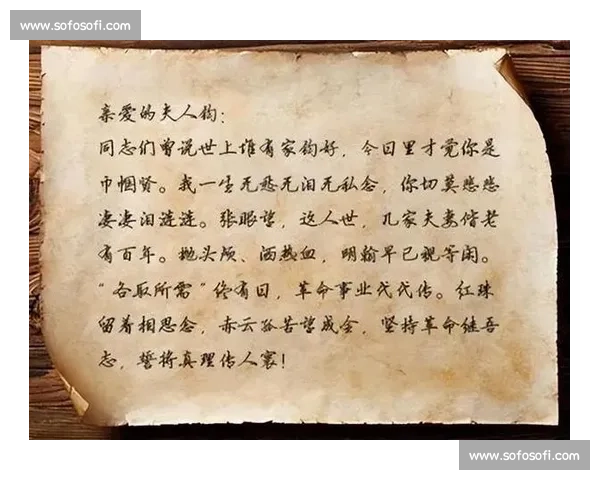 www.sofosofi.com
亲爱的夫人钧：
同志们曾说世上惟有家钧好，今日里才觉你是
巾帼贤。我一生无愁无泪无私念，你切莫悲悲
凄凄泪涟涟。张眼望，这人世，几家夫妻偕老
有百年。抛头颅、洒热血，明翰早已视等闲。
“各取所需”终有日，革命事业代代传。红珠
留着相思念，赤云孤苦望成全，坚持革命继吾
志，誓将真理传人寰！
www.sofosofi.com